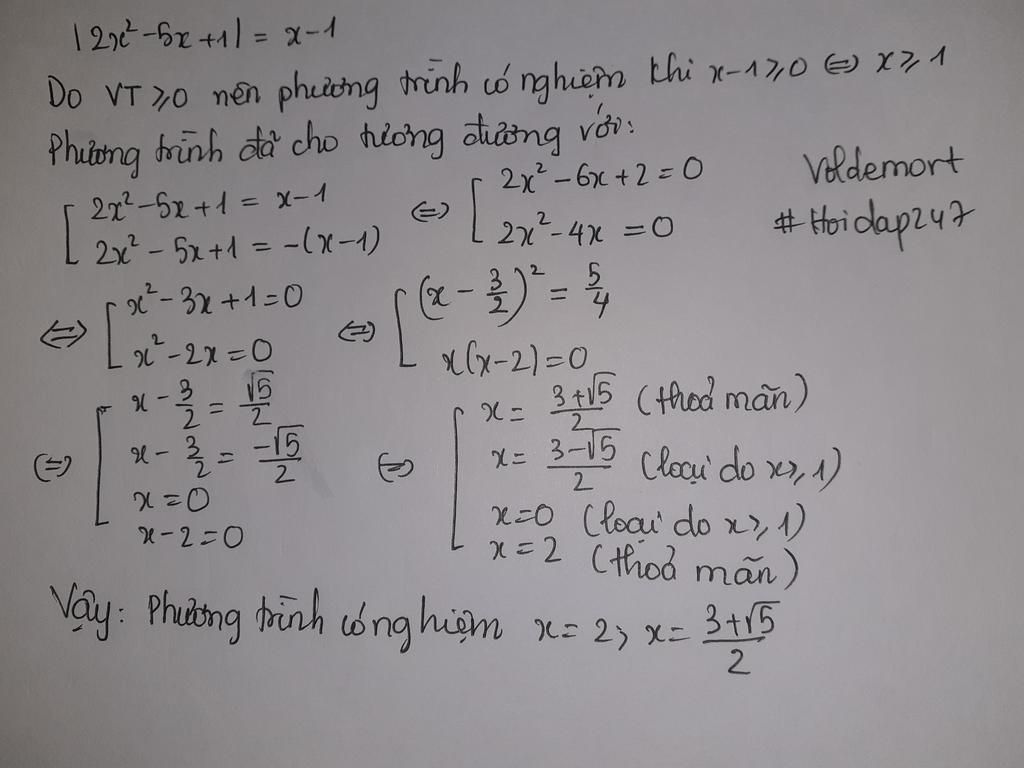 |2x² - 5x + 1| = x - 1
Do VT ≥ 0 nên phương trình có nghiệm khi x - 1 ≥ 0 ⇔ x ≥ 1
Phương trình đã cho tương đương với:
[ 2x² - 5x + 1 = x - 1 ⇔ [ 2x² - 6x + 2 = 0
2x² - 5x + 1 = -(x - 1) 2x² - 4x = 0
Voldemort
#Hoidap247
⇔ [ x² - 3x + 1 = 0 ⇔ [ (x - 3/2)² = 5/4
x² - 2x = 0 x(x - 2) = 0
⇔ [ x - 3/2 = √5/2 ⇔ [ x = (3+√5)/2 (thoả mãn)
x - 3/2 = -√5/2 x = (3-√5)/2 (loại do x ≥ 1)
x = 0 x = 0 (loại do x ≥ 1)
x - 2 = 0 x = 2 (thoả mãn)
Vậy: Phương trình có nghiệm x = 2; x = (3+√5)/2